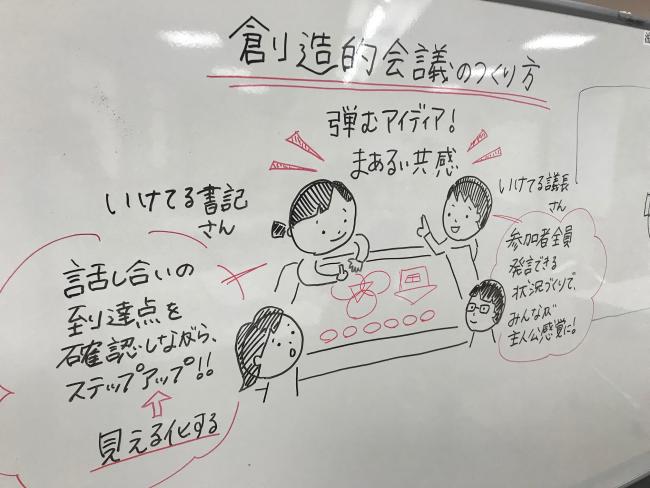 創造的会議のつくり方
弾むアイディア!
まあるい共感
いけてる書記
さん
話し合いの
到達点を
確認しながら、
ステップアップ!!
見える化する
いけてる議長
さん
参加者全員
発言できる
状況づくりで、
みんなが
主人公感覚に!